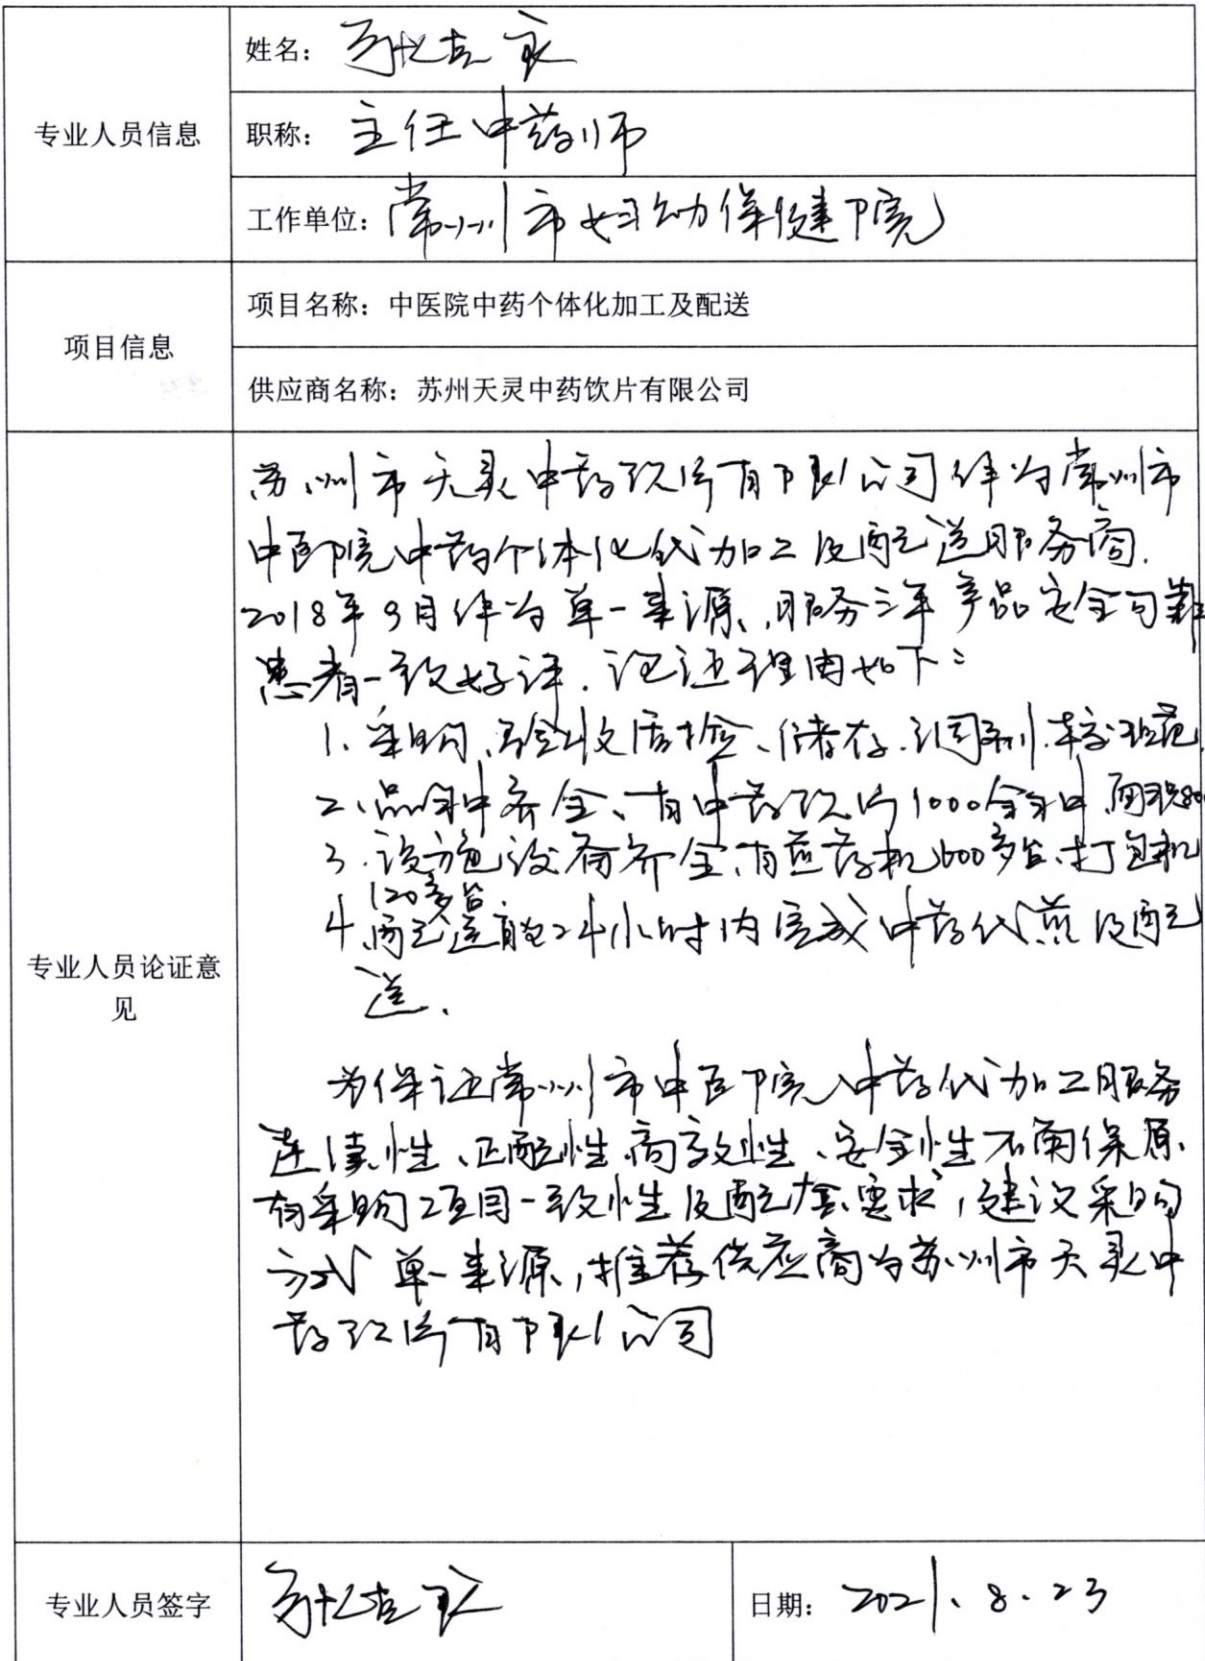 专业人员信息
姓名：
职称：主任中药师
工作单位：常州市妇幼保健院
项目信息
项目名称：中医院中药个体化加工及配送
供应商名称：苏州天灵中药饮片有限公司
专业人员论证意
见
苏州市天灵中药饮片有限公司作为常州市
中医院中药个体化代加工及配送服务商.
2018年9月作为单一来源、服务三年产品安全可靠
患者一致好评. 论证理由如下：
1、采购、验收质检、储存、调剂、规范
2、品种齐全、有中药饮片1000余种 面积80
3、设施设备齐全、有煎药机600多台、打包机
120多台
4、配送能24小时内完成中药代煎及配
送.
为保证常州市中医院中药代加工服务
连续性、匹配性、高效性、安全性 确保原
有采购项目一致性及配套要求，建议采购
方式单一来源，推荐供应商为苏州市天灵中
药饮片有限公司
专业人员签字
日期：2021.8.23